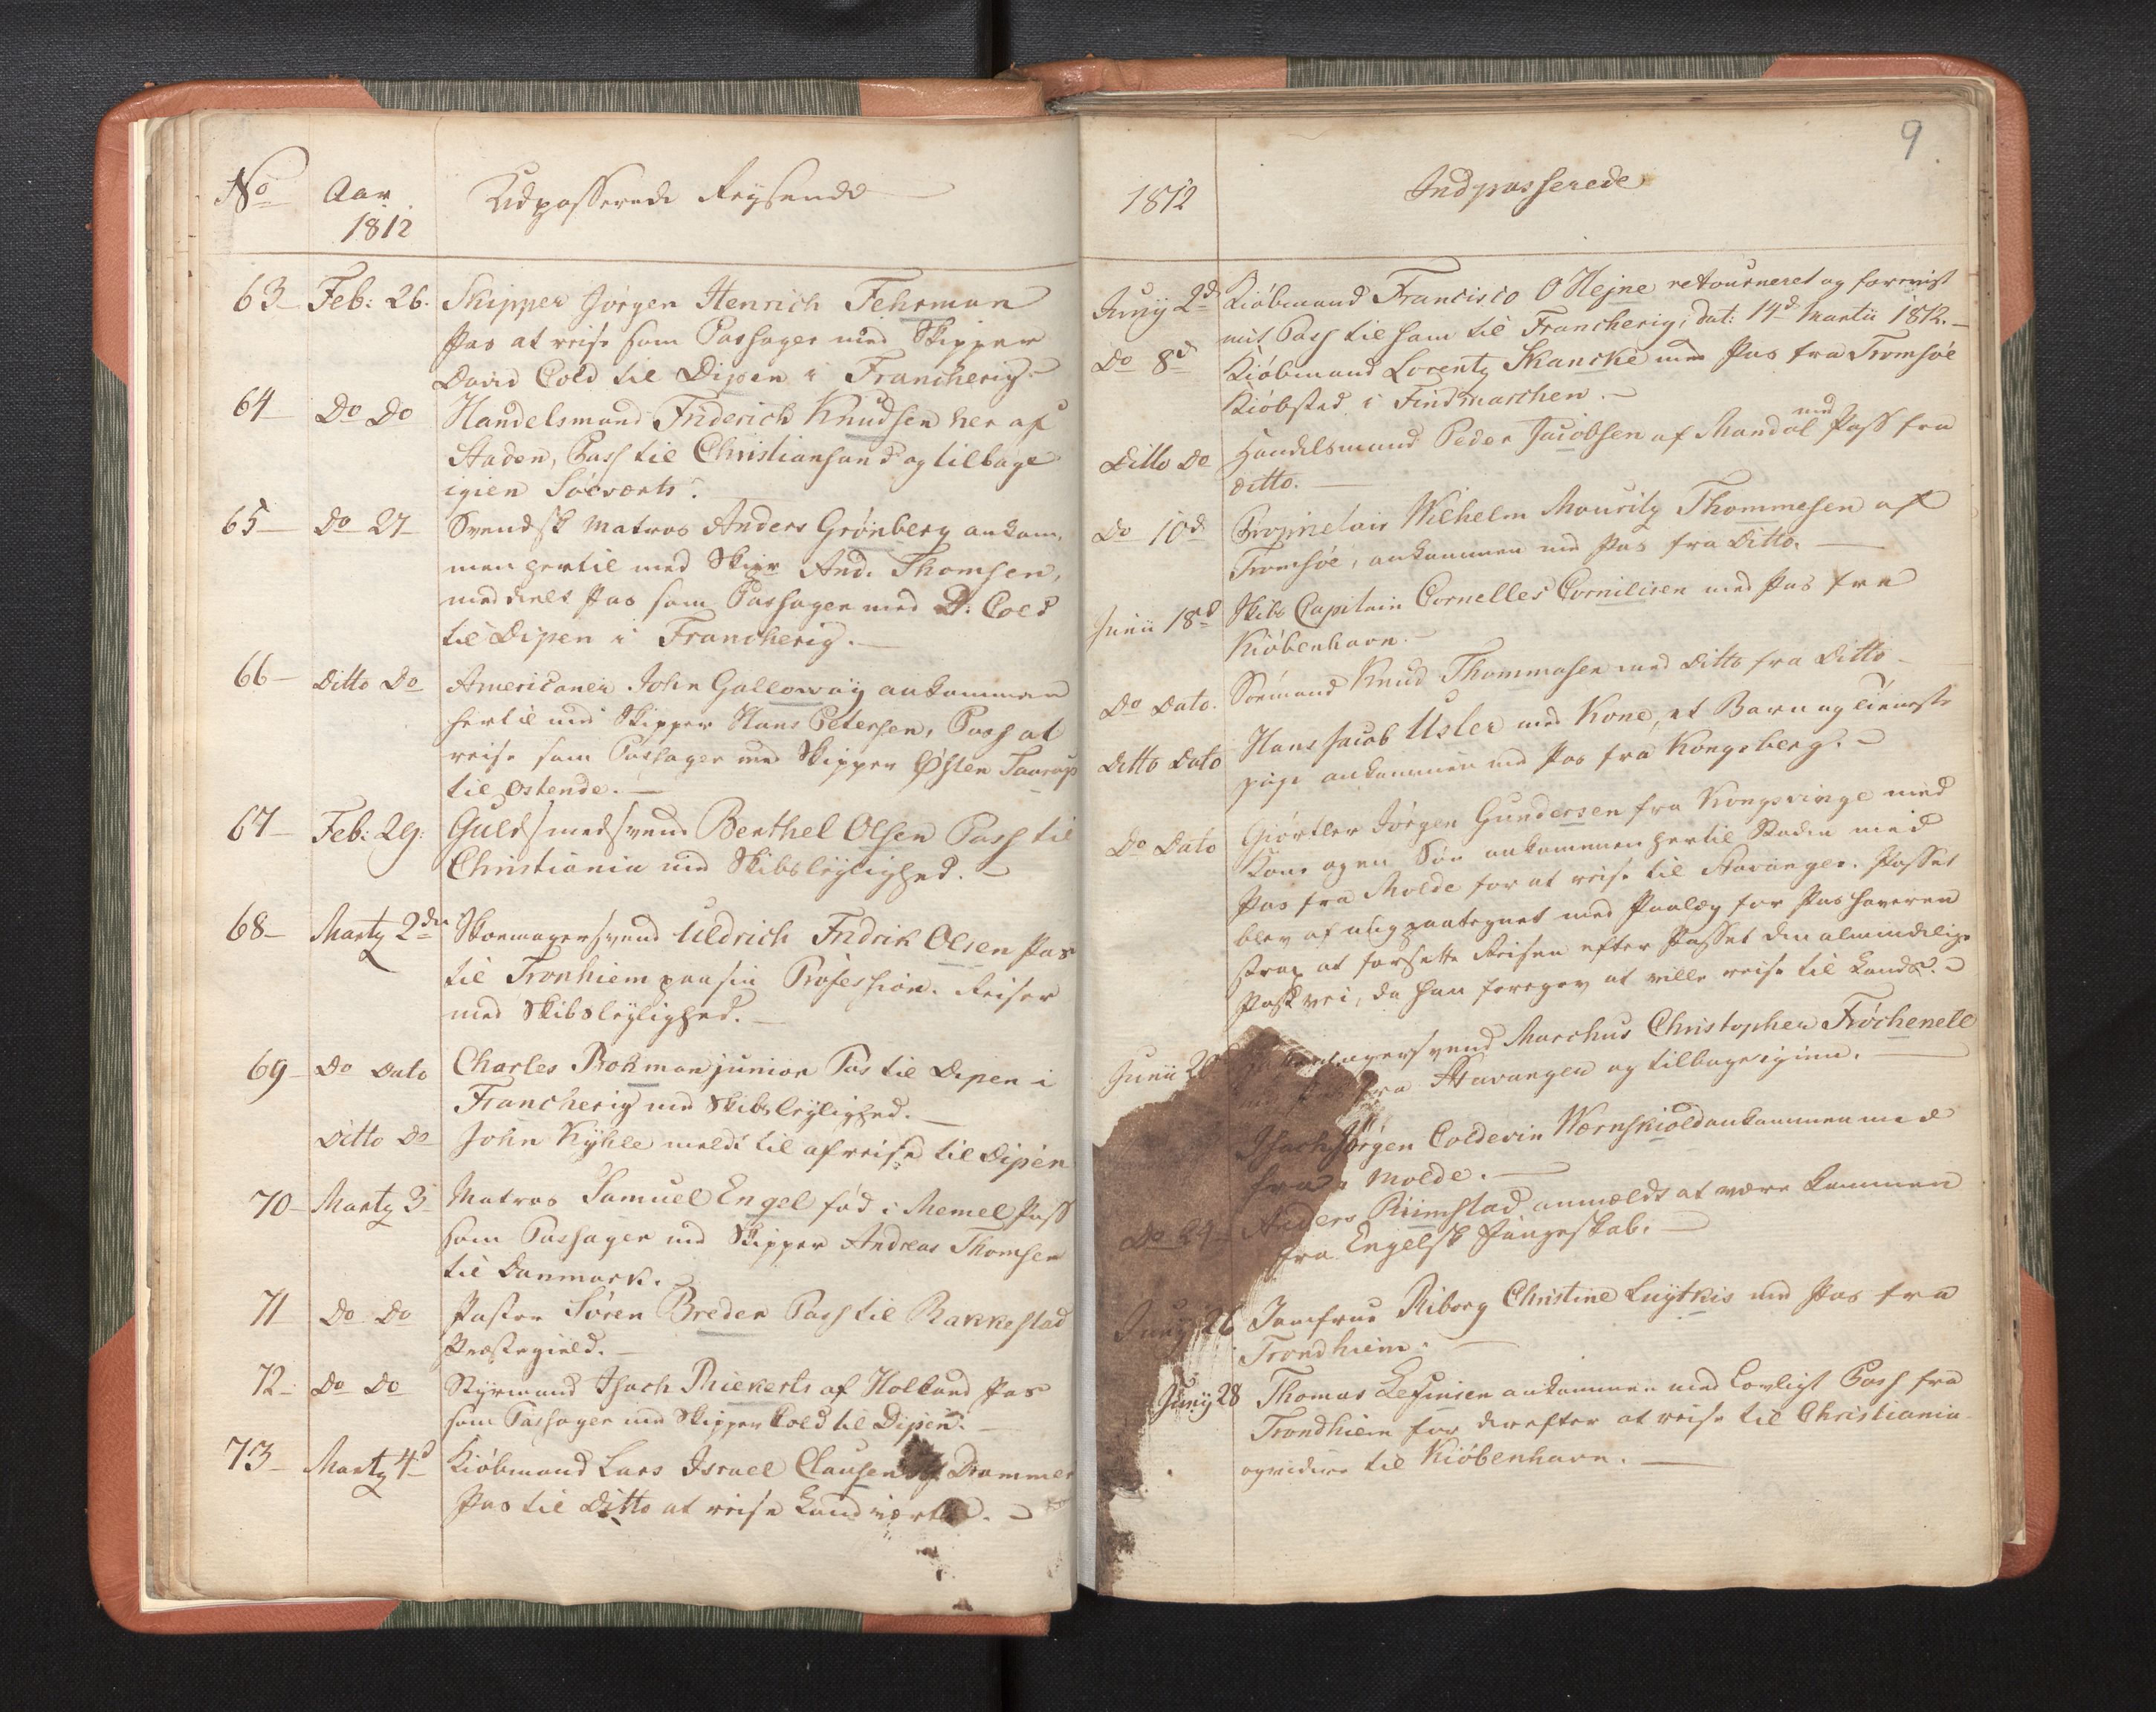 No Aar 1812 Udpasserede Reysende
63 Feb: 26. Skipper Jörgen Henrich Fehrman
Pas at reise som Passager med Skipper
David Cold til Dipen i Francherig
64 Do Do Handelsmand Friderich Knudsen her af
Staden, Pass til Christiansand og tilbage
igien Söeverts.
65 Do 27 Svendsk Matros Anders Grönberg ankom,
men hertil med Skipr And. Thomsen,
meddeelt Pas som Passager med D. Cold
til Dipen i Francherig.
66 Ditto Do Americaner John Galloway ankommen
hertil med Skipper Hans Petersen, Pass at
reise som Passager med Skipper Østen Taarup
til Ostende.
67 Feb: 29. Guldsmedsvend Benthel Olsen Pass til
Christiania med Skibsleylighed.
68 Marty 2den Skoemagersvend Uldrich Fridrik Olsen Pas
til Tronhiem paa sin Profession. Reiser
med Skibsleylighed.
69 Do Dato Charles Bokman junior Pas til Dipen i
Francherig med Skibsleylighed.
Ditto Do John Kyhle meldt til afreise til Dipen
70 Marty 3 Matros Samuel Engel föd i Memel Pass
som Passager med Skipper Andreas Thomsen
til Danmark.
71 Do Do Pastor Sören Breder Pass til Rakkestad
Præstegield.
72 Do Do Styrmand Isach Riekerts af Holland Pas
som Passager med Skipper Cold til Dipen.
73 Marty 4d Kiöbmand Lars Israel Clausen af Drammen
Pas til Ditto at reise Landverts.
9
1812 Indpasserede
Juny 2d Kiöbmand Francisco O'Hejne retourneret og forevist
mit Pass til ham til Francherig, dat: 14d Martii 1812.
Do 8d Kiöbmand Lorentz Skancke med Pas fra Tromsöe
Kiöbsted i Findmarchen.
Ditto Do Handelsmand Peder Jacobsen af Mandal med Pass fra
ditto.
Do 10d Proprietair Wilhelm Mouritz Thommesen af
Tromsöe, ankommen med Pas fra Ditto.
Junii 18d Skibs Capitain Cornelles Cornilisen med Pas fra
Kiöbenhavn.
Do Dato. Söemand Knud Thommasen med Ditto fra Ditto
Ditto Dato Hans Jacob Usler med Kone, et Barn og Tieneste
pige ankommen med Pas fra Kongsberg.
Do Dato Giörtler Jörgen Gundersen fra Kongsvinge med
Kone og en Sön ankommen hertil Staden med
Pas fra Molde for at reise til Stavanger. Passet
blev af mig paategnet med Paalæg for Pashaveren
strax at forsette Reisen efter Passet den almindelige
Postvei, da han foregav at ville reise til Lands.
Junii Marchus Christopher Fröchenell
fra Stavanger og tilbage igien.
Isach Jörgen Coldevin Wernskiold ankommen med
fra Molde.
Do 24 Anders Riimstad anmeldt at være kommen
fra Engelsk Fangeskab.
Juny 26 Jomfrue Riborg Christine Luytkis med Pas fra
Trondhiem.
Juny 28 Thomas Lessinsen ankommen med Lovligt Pass fra
Trondhiem for derefter at reise til Christiania
og videre til Kiöbenhavn.